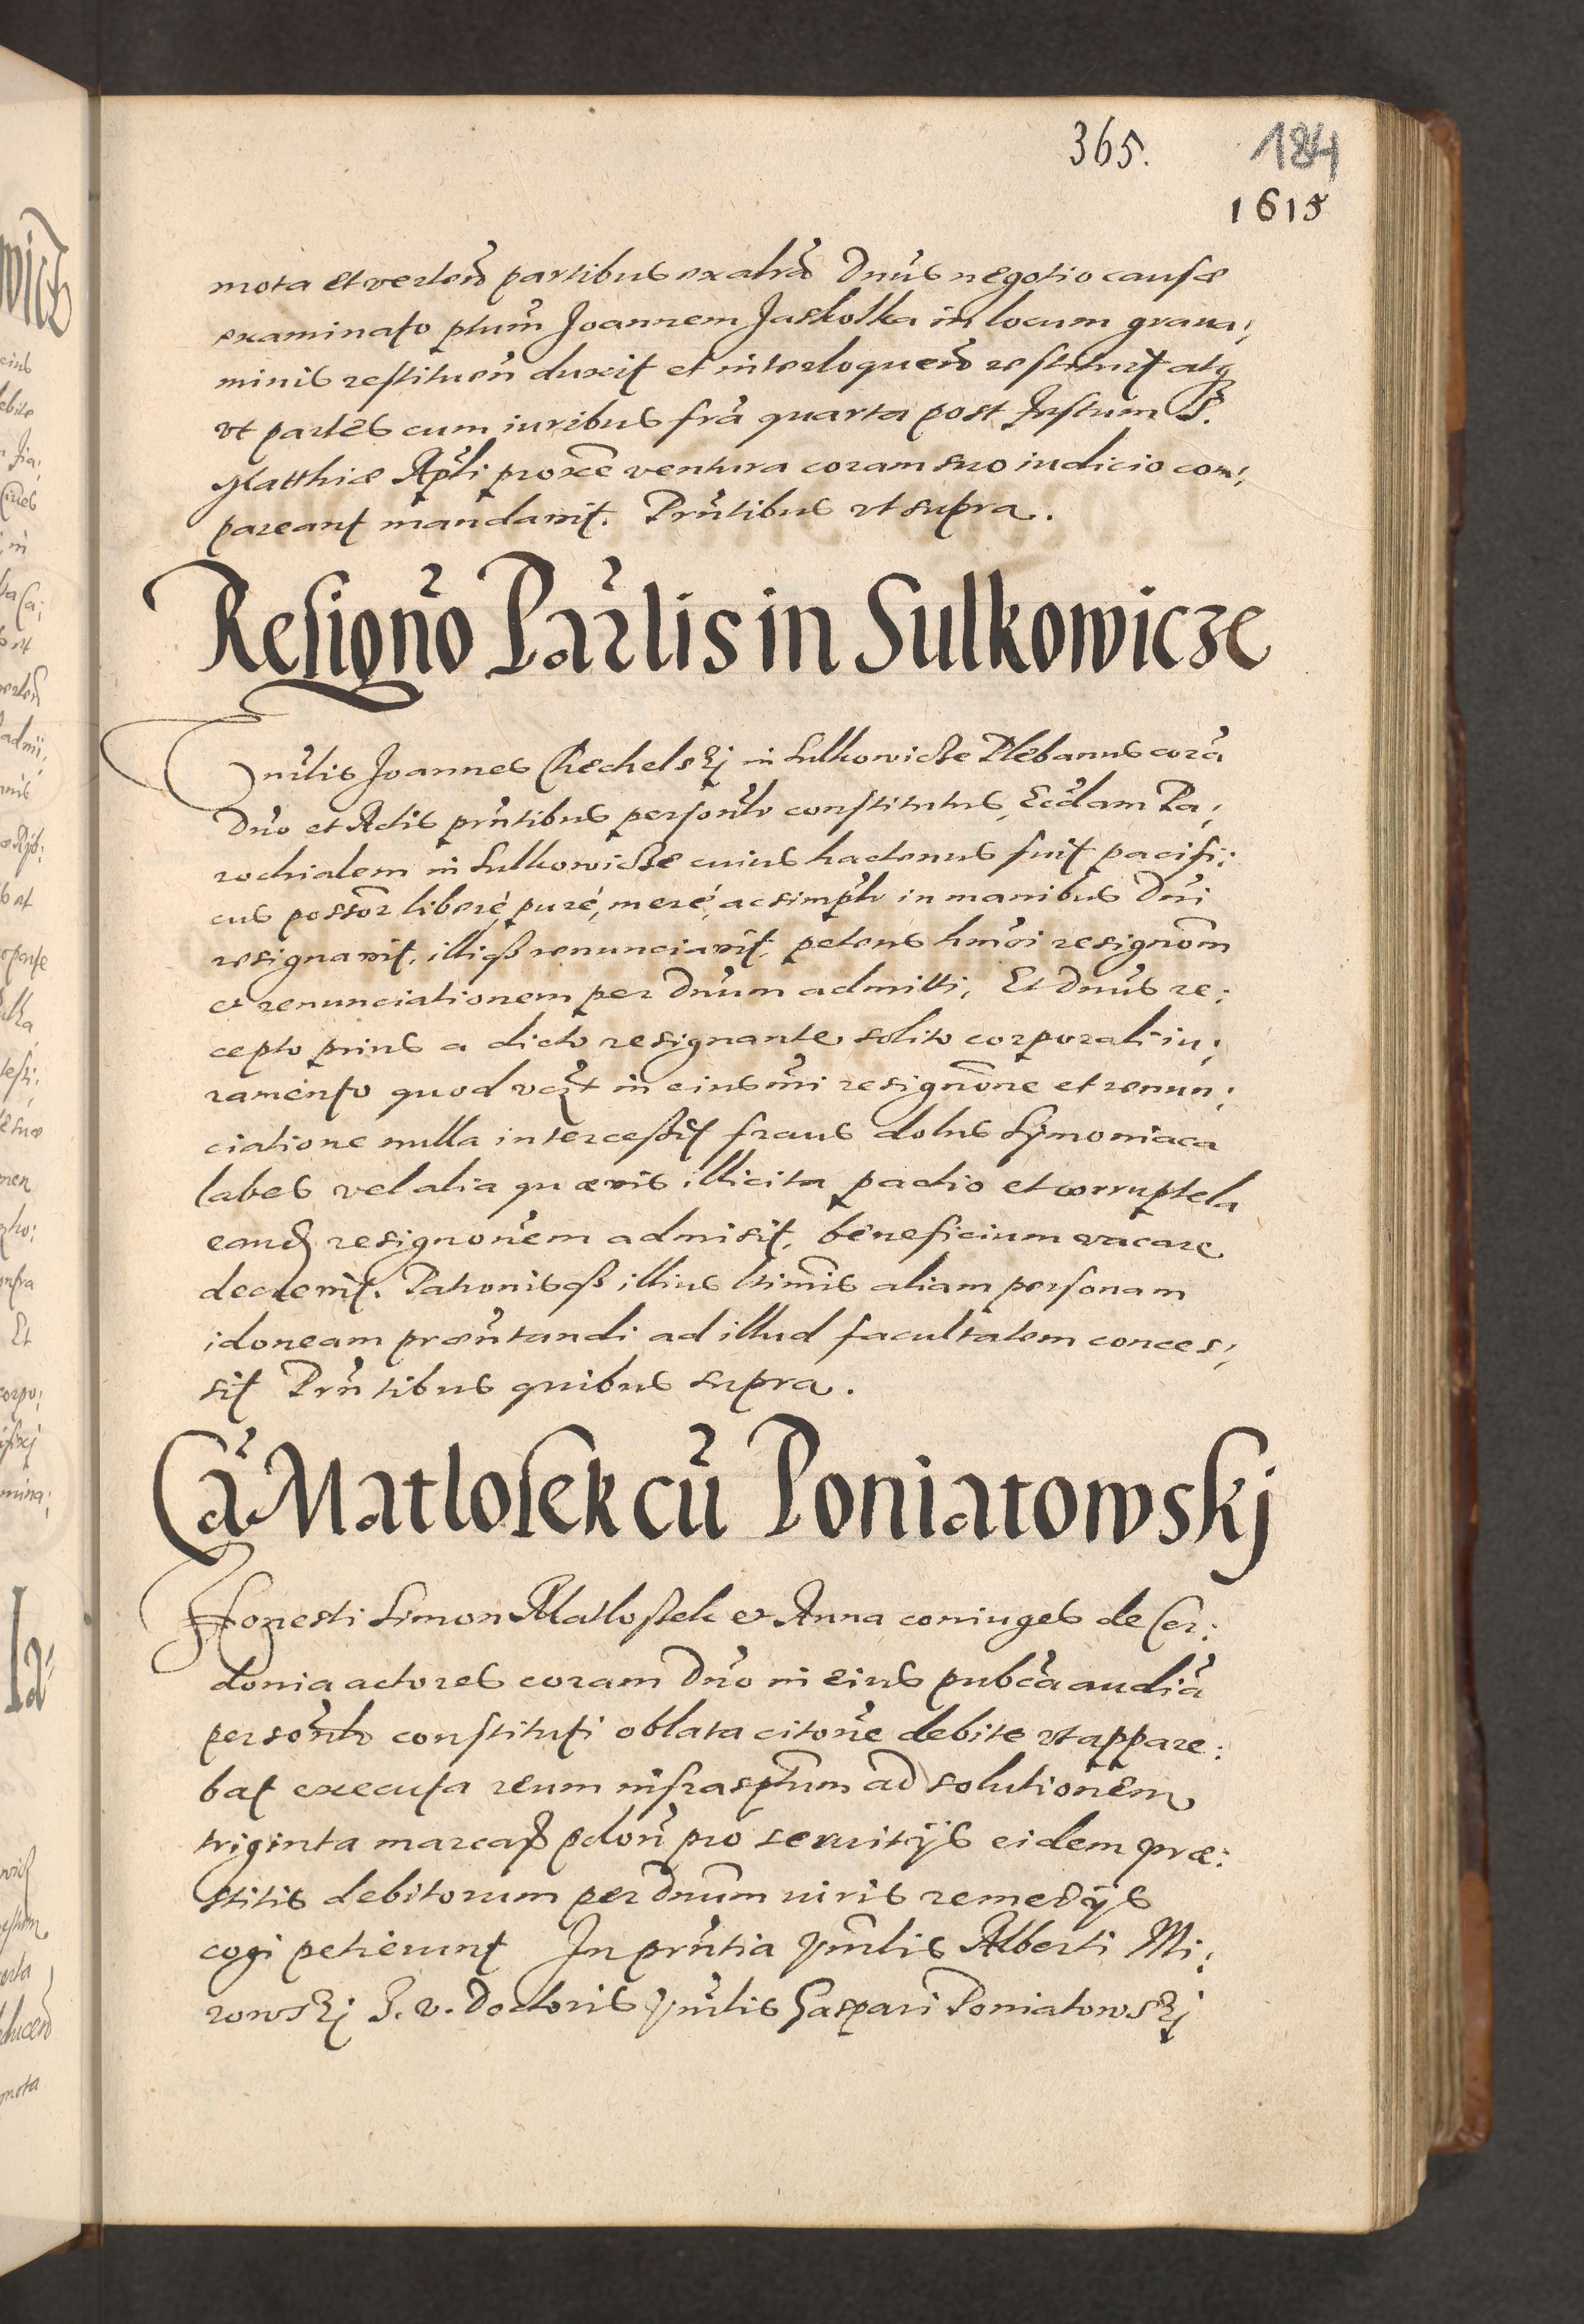 365. 184
1615
mota et verten̄ partibus ex altrā Dnūs negotio causæ
examinato ptum̄ Joannem Jaskolka in locum graua,
minis restituen̄ duxit et interloquen̄ restituit atq
vt partes cum iuribus frā quarta post festum S.
Matthiæ Apli proxe ventura coram suo iudicio com,
pareant mandauit. Prn̄tibus vt supra.
Resigno Parlis in Sulkowicze
Vnrlis Joannes Chechelskj in Sulkowicze Plebanus corā
Dno et Actis prntibus personlr constitutus, Ecclam Pa,
rochialem in Sulkowicze cuius hactenus fuit pacifi,
cus possor liberè, purè, merè, ac simplr in manibus Dni
resignauit, illiqз renunciauit, petens hmoi resignom
et renunciationem per Dnum admitti, Et Dnus re,
cepto prius a dicto resignante solito corporali iu,
ramento quod vczt in eiusmi resignone et renun,
ciatione nulla intercessit fraus dolus Symoniaca
labes vel alia quævis illicita pactio et corruptela
eand resignonem admisit, beneficium vacare
decreuit. Patronisqз illius ltimis aliam personam
idoneam præntandi ad illud facultatem conces,
sit Prntibus quibus supra.
Cā Matlosek cū Poniatowskj
Honesti Simon Matlosek et Anna coniuges de Cer,
donia actores coram Dno in eius pubca audia
personlr constituti oblata citone debite vt appare,
bat executa reum infrasptum ad solutionem
triginta marcarз pclon pro seruitijs eidem præ,
stitis debitorum per Dnum iuris remedijs
cogi petierunt In prntia Vnrlis Alberti Mi,
rowskj J. v. Doctoris Vnrlis Gaspari Poniatowskj